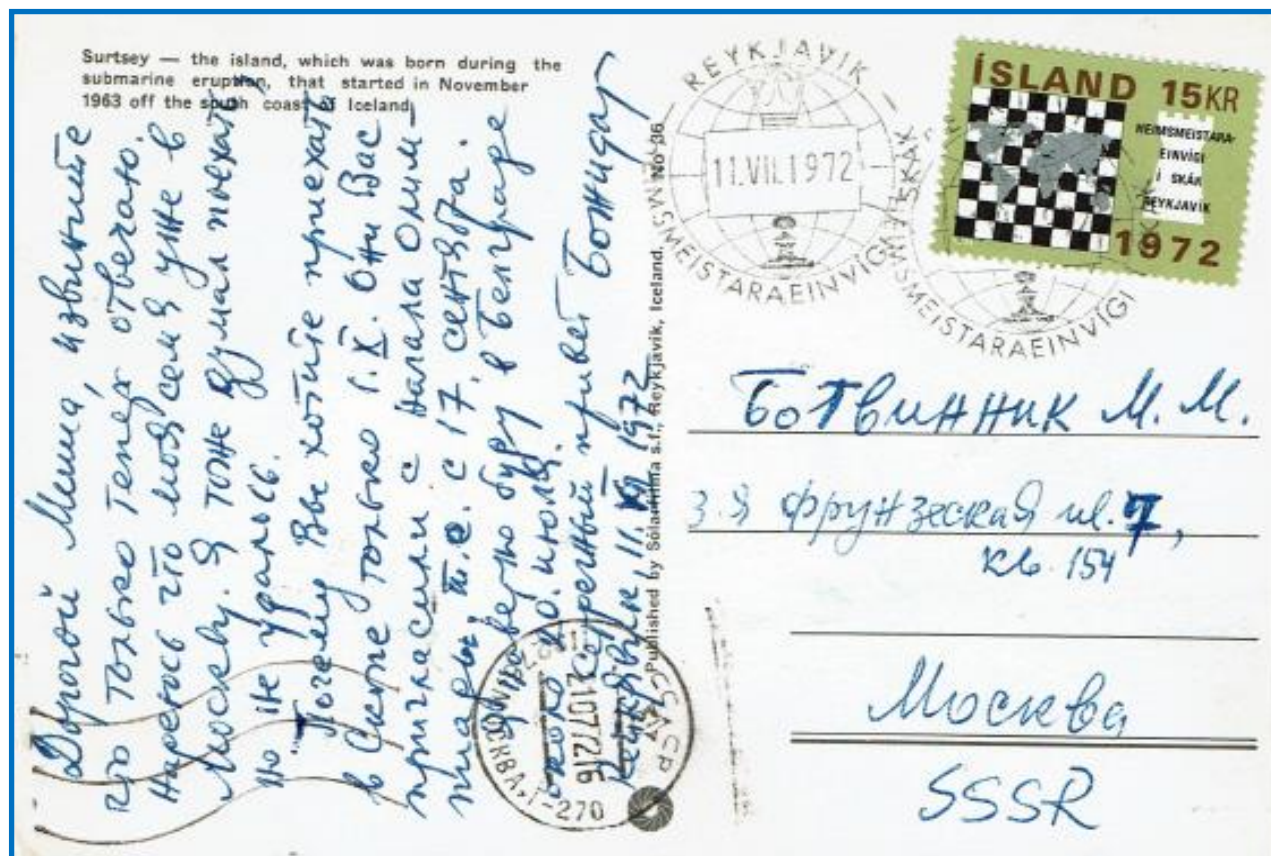 Surtsey — the island, which was born during the
submarine eruption, that started in November
1963 off the south coast of Iceland.
Дорогой Миша, извините
что только теперь отвечаю.
Надеюсь что моя семя уже в
Москву. Я тоже думал поехать
но не удалось.
Почему Вы хотите приехать
в Скопе только 1.X. Они Вас
пригласили с начала Олим-
пиады, т.е. с 17. сентября.
Я наверно буду в Белграде
около 40. июля.
Сердечный привет Божидар
Рейкявик 11. VII 1972
No 36
Published by Sólarfilma s.f., Reykjavik, Iceland.
REYKJAVIK
11.VII.1972
HEIMSMEISTARAEINVÍGI Í SKÁK
HEIMSMEISTARAEINVÍGI
ÍSLAND 15KR
HEIMSMEISTARA-
EINVÍGI
Í SKÁK
REYKJAVÍK
1972
Ботвинник М. М.
3.я Фрунзеская ул. 7,
кв. 154
Москва
SSSR
МОСКВА, Г-270
21077216